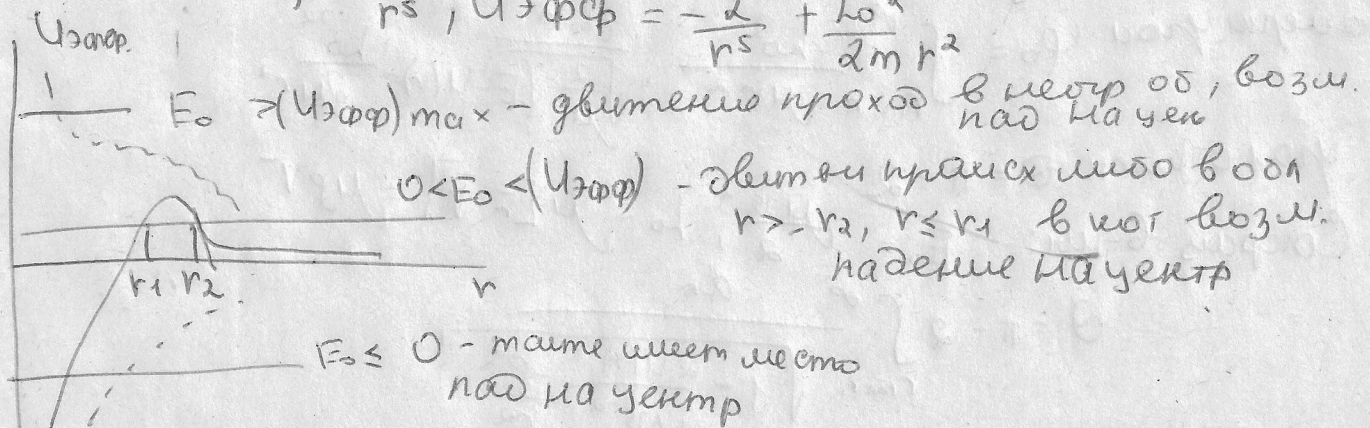 r⁵, Uэфф = -α/r⁵ + L₀²/2mr²
Uэфф.
E₀ >(Uэфф)max – движение проход в неогр об, возм.
пад на цен
0<E₀<(Uэфф) – движен происх либо в обл
r>r₂, r≤r₁ в кот возм.
падение на центр
r₁ r₂ r
E₀≤ 0 – также имеет место
пад на центр